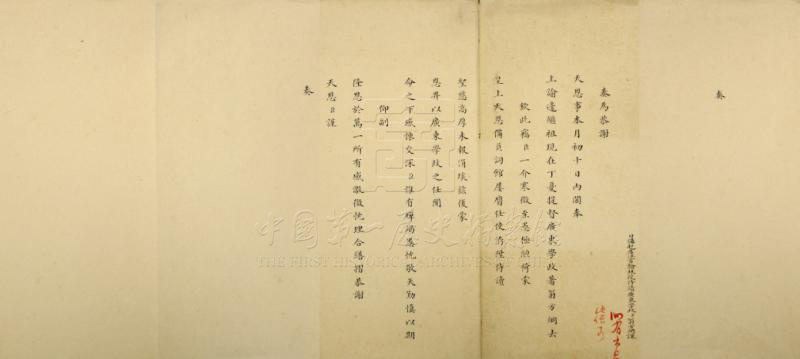 奏
奏為恭謝
天恩事本月初十日內閣奉
上諭邊繼祖現在丁憂提督廣東學政著翁方綱去
欽此竊臣一介寒微至愚極陋荷蒙
皇上天恩備員詞館屢膺任使洊陞侍讀
聖慈高厚未報涓埃茲復蒙
恩畀以廣東學政之任聞
命之下感悚交深臣惟有殫竭愚忱敬天勤慎以期
仰副
隆恩於萬一所有感激微忱理合繕摺恭謝
天恩臣謹
奏
中國第一歷史檔案館
THE FIRST HISTORICAL ARCHIVES OF CHINA